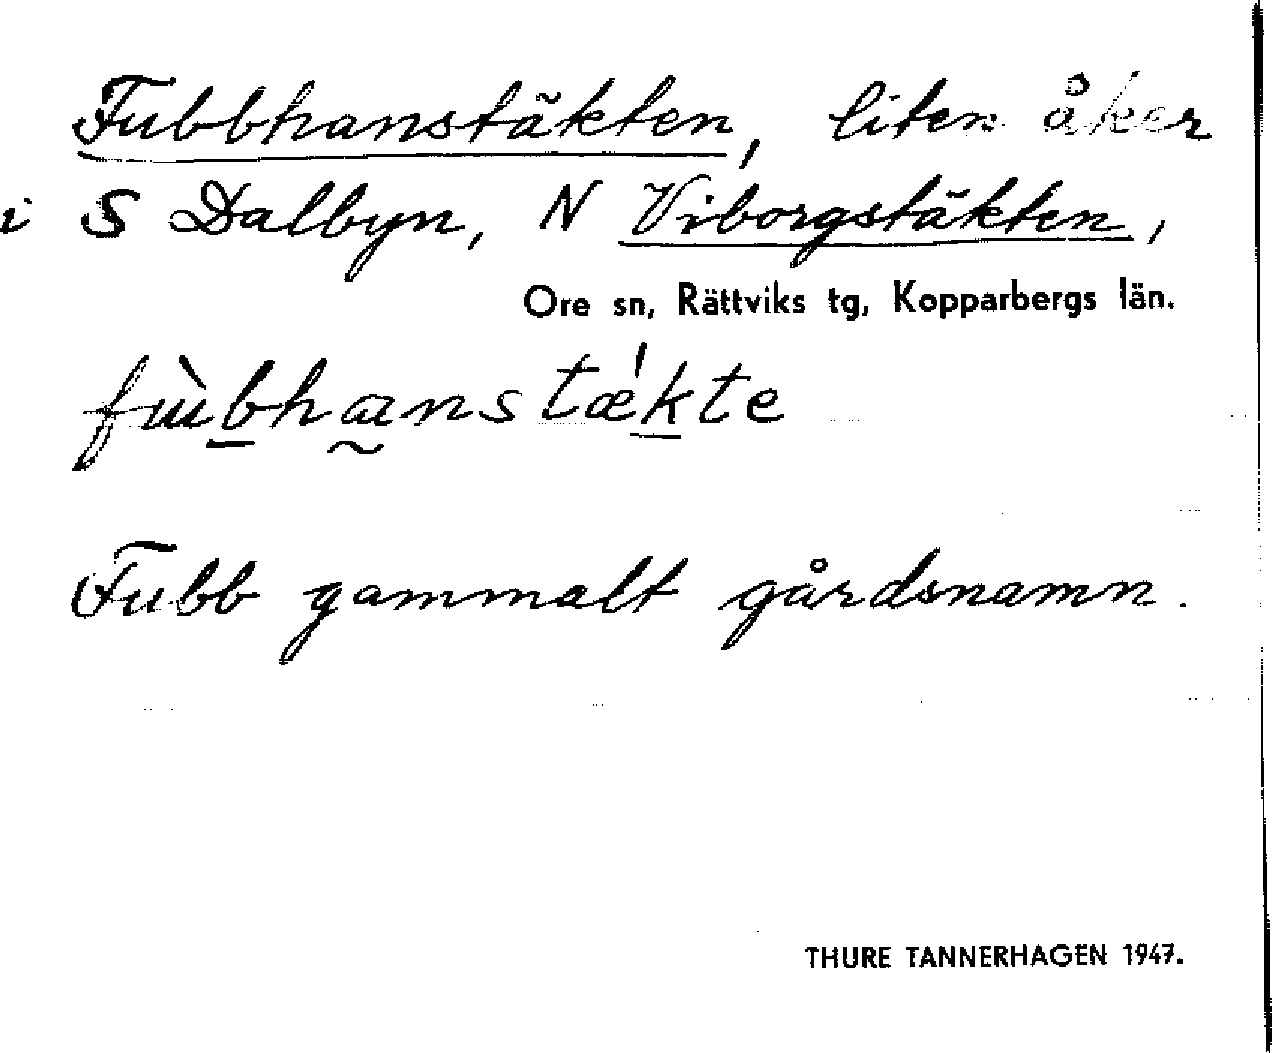 Fubbhanstäkten, liten åker
i S Dalbyn, N Viborgstäkten,
Ore sn, Rättviks tg, Kopparbergs län.
fɯ̀b̲ha̰nstæ'k̲te
Fubb gammalt gårdsnamn.
THURE TANNERHAGEN 1947.